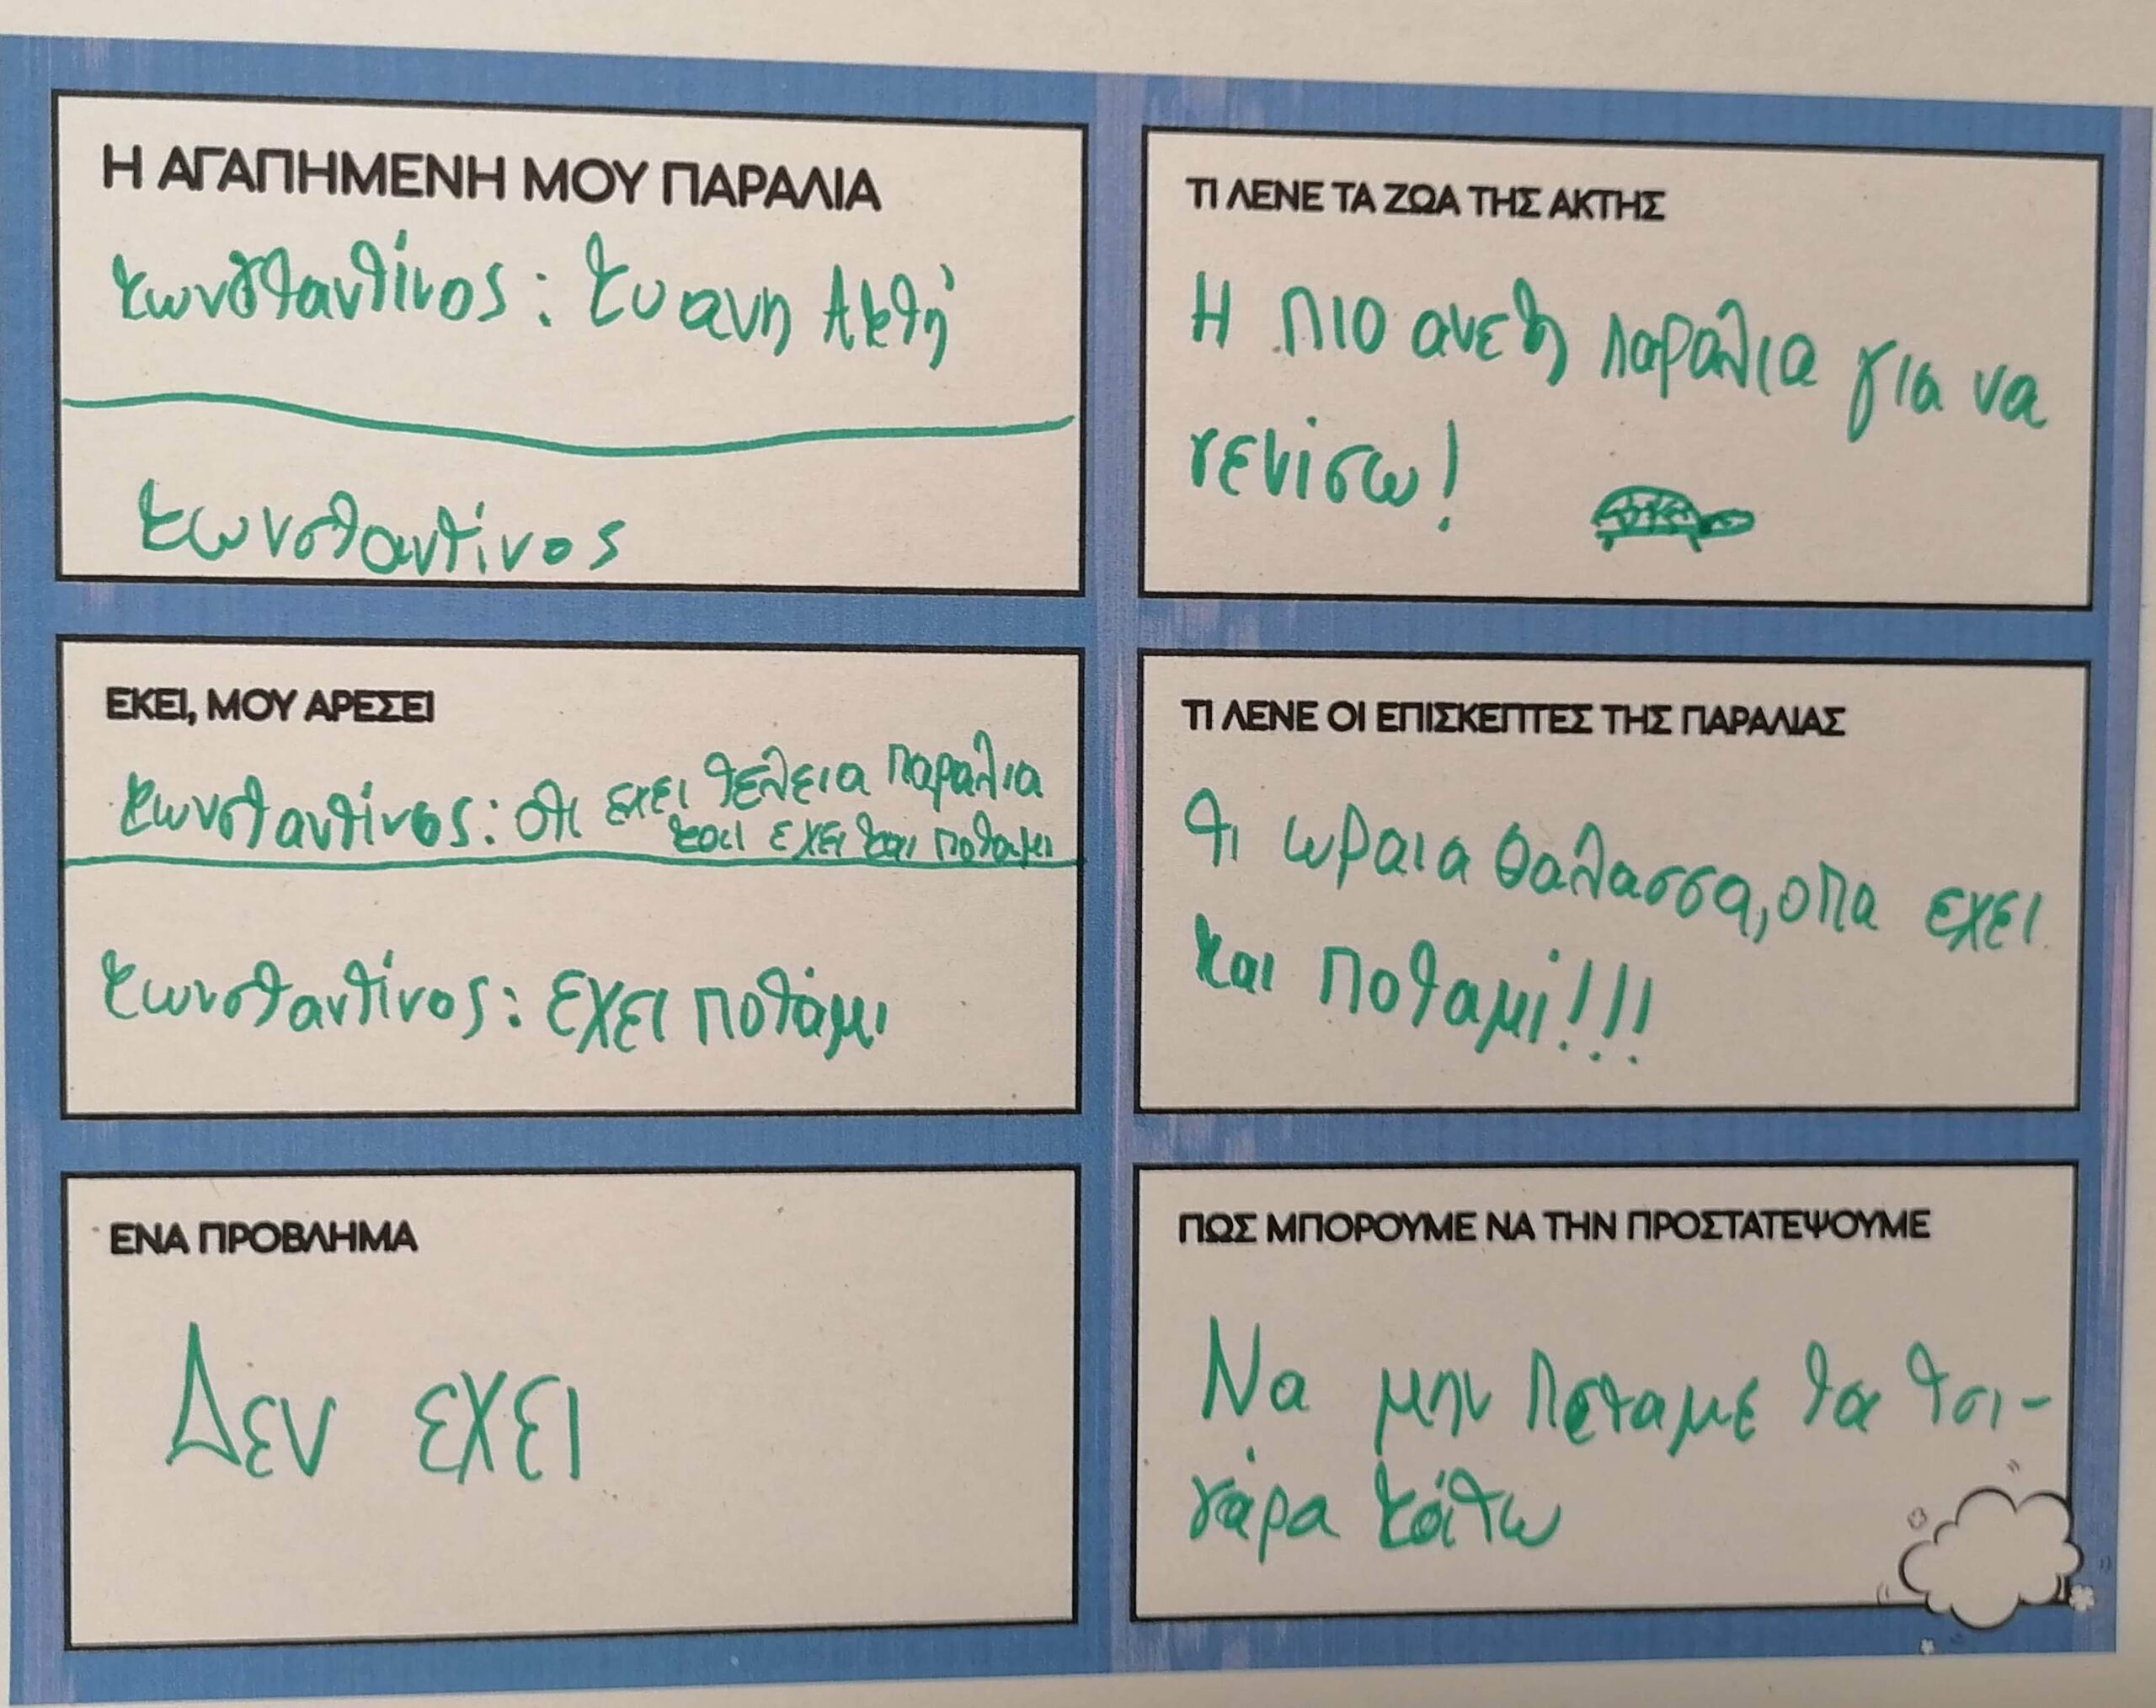 Η ΑΓΑΠΗΜΕΝΗ ΜΟΥ ΠΑΡΑΛΙΑ
Κωνσταντίνος: Κυανη Ακτή
Κωνσταντίνος
ΕΚΕΙ, ΜΟΥ ΑΡΕΣΕΙ
Κωνσταντίνος: οτι εχει τελεια παραλια
και εχει και ποταμι
Κωνσταντίνος: εχει ποτάμι
ΕΝΑ ΠΡΟΒΛΗΜΑ
Δεν εχει
ΤΙ ΛΕΝΕ ΤΑ ΖΩΑ ΤΗΣ ΑΚΤΗΣ
Η πιο ανετη παραλια για να
γενίσω!
ΤΙ ΛΕΝΕ ΟΙ ΕΠΙΣΚΕΠΤΕΣ ΤΗΣ ΠΑΡΑΛΙΑΣ
Τι ωραια θαλασσα, οπα εχει
και ποταμί!!!
ΠΩΣ ΜΠΟΡΟΥΜΕ ΝΑ ΤΗΝ ΠΡΟΣΤΑΤΕΨΟΥΜΕ
Να μην πεταμε τα τσι-
γάρα κάτω